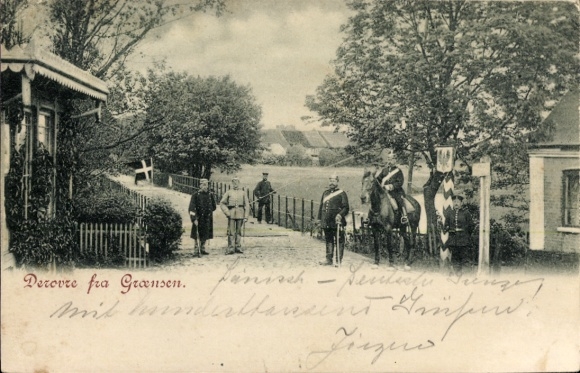 Derovre fra Grænsen.
Dänisch – Deutsche Grenze!
mit hunderttausend Grüßen!
Jörgen